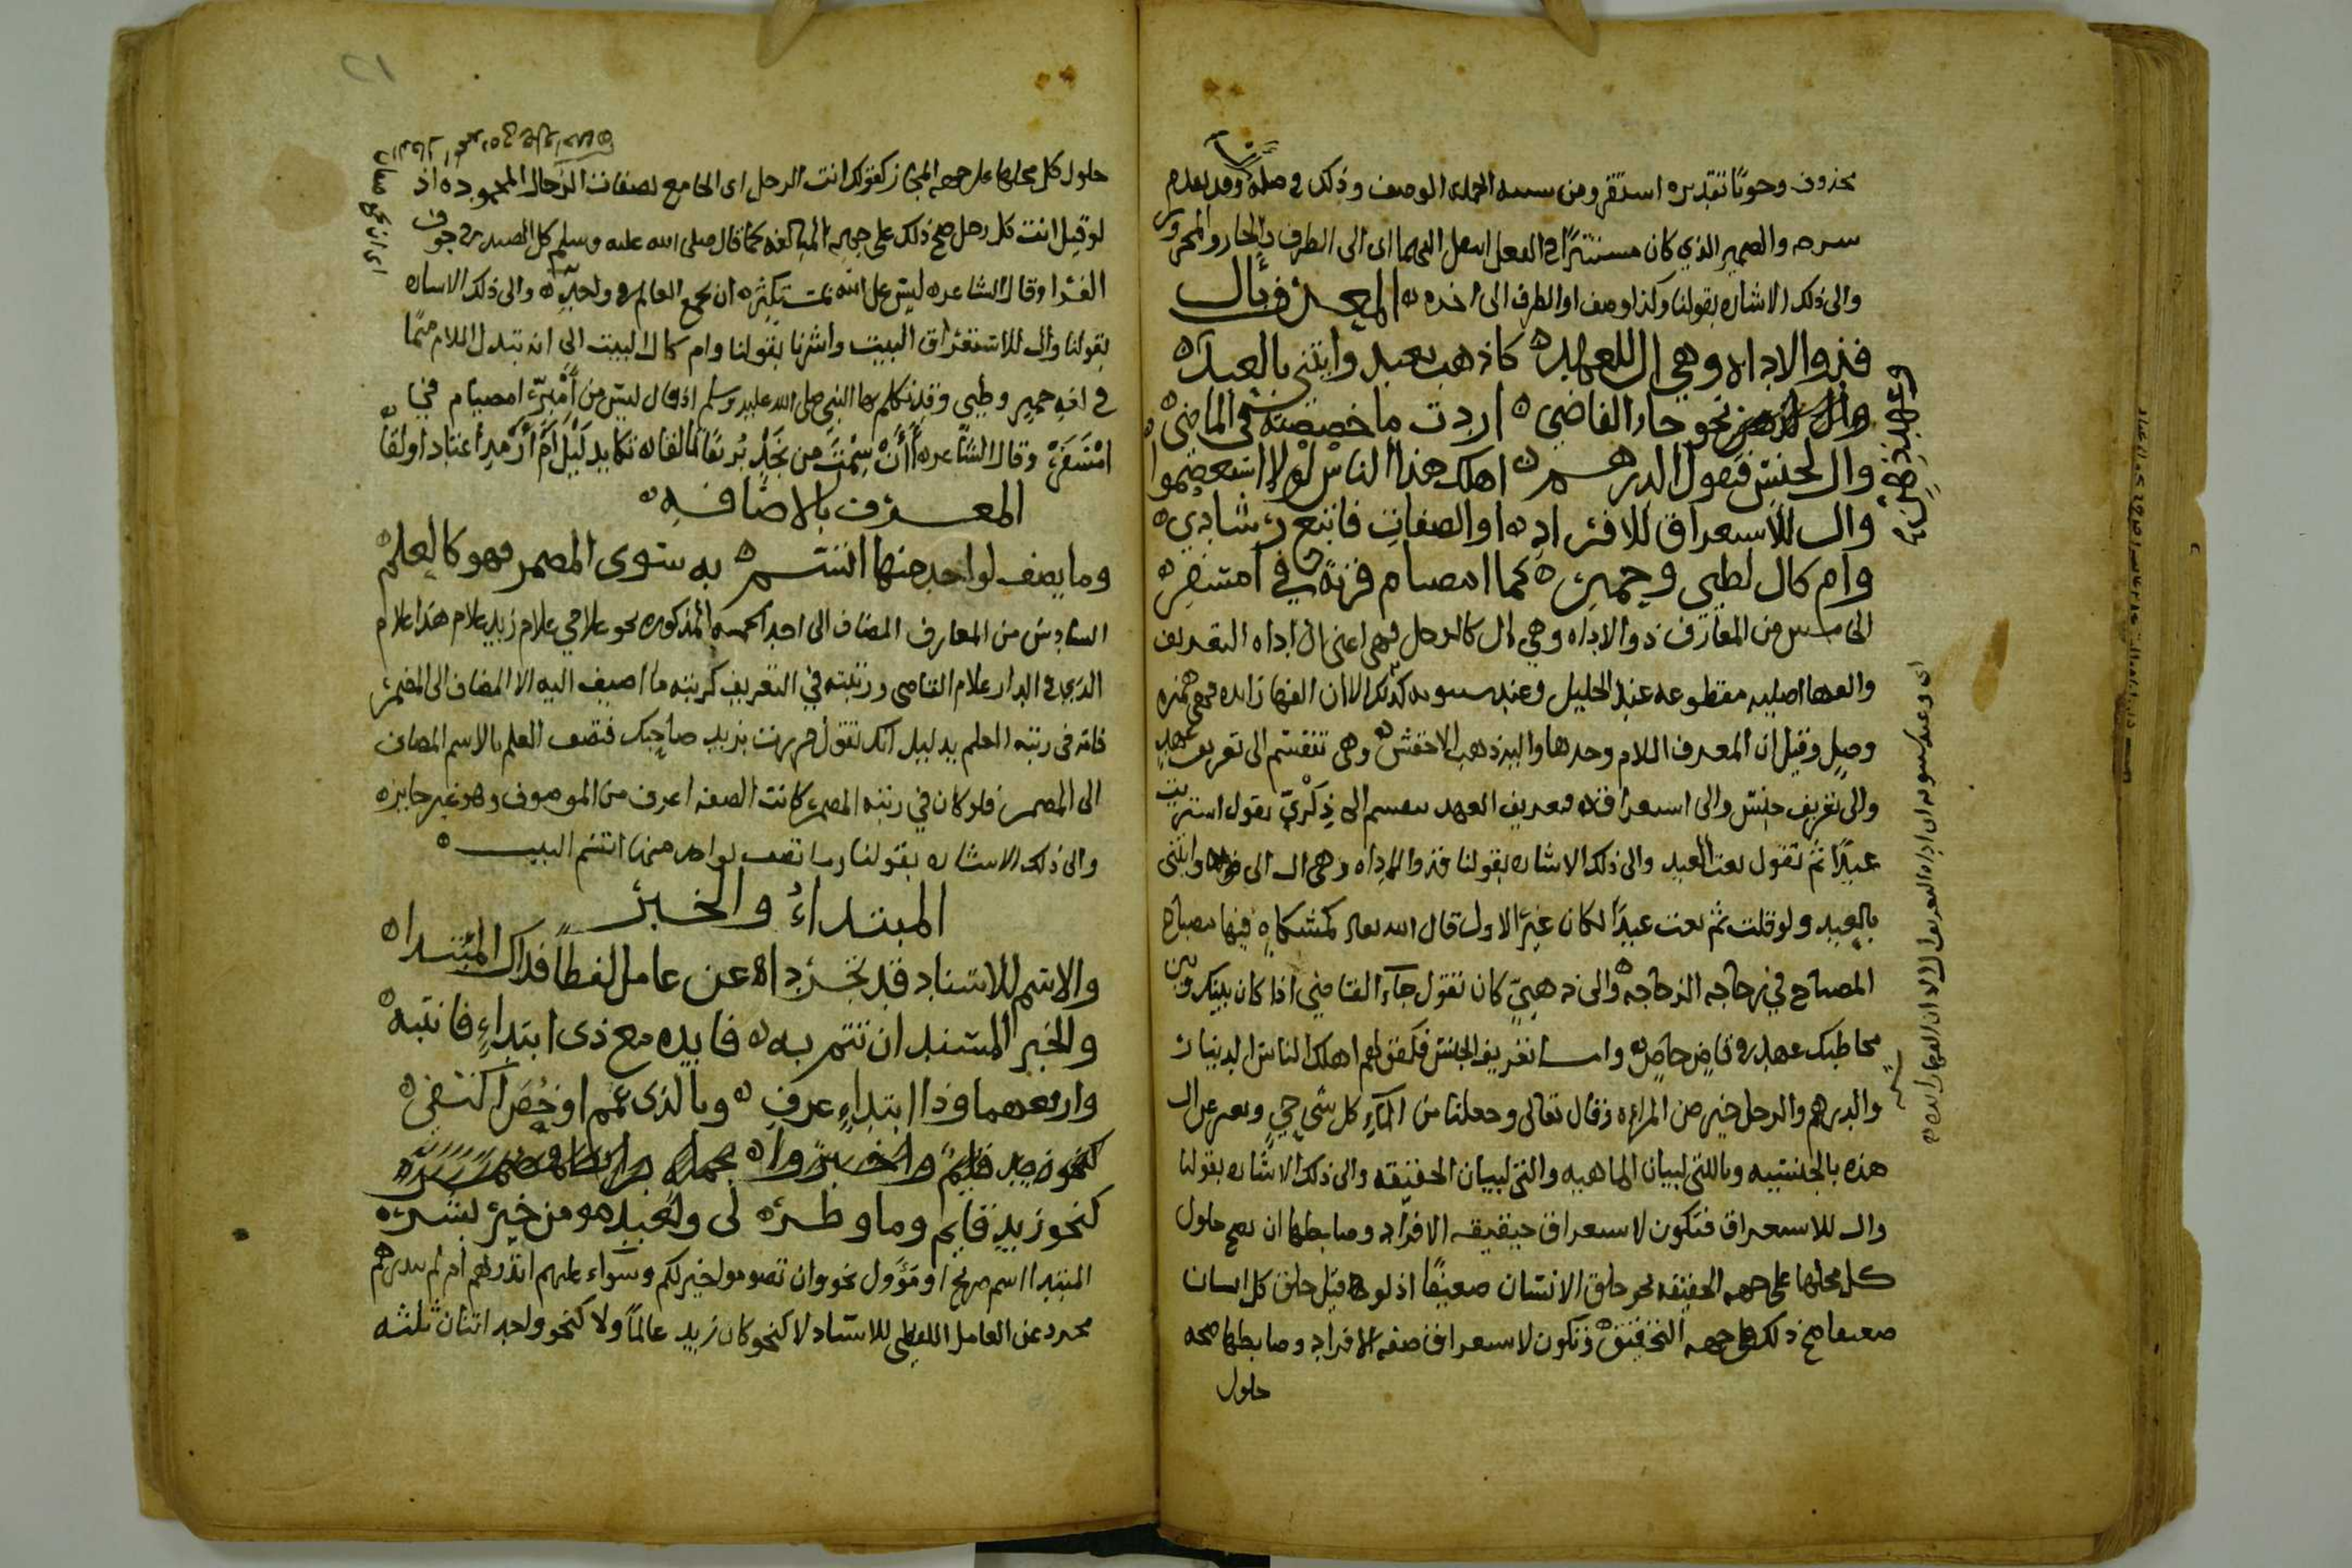 محذوف وجوبًا تقديره استقر ومن الجملة الوصف وذلك في صلة وقد تقدم
سرحه والضمير الذي كان مستترًا في الفعل انتقل اليهما اى الى الظرف والجار والمجرور
والى ذلك الاشاره بقولنا وكذا وصف او الظرف الى اخره المعرف بال
فذو الاداه وهي ال للعهده كاذهب بعبد وايتني بالعبده
نحو جاء القاضى اردت ما خصصته في الماضى
وال لجنس فيقول الدرهم اهلك هذا الناس لولا استعصموا
وال للاستغراق للافراده او الصفات فاتبع رشادي
وام كال لطيى وحمير كما امصيام قربة في امسفر
الخامس من المعارف ذو الاداه وهي ال كالرجل فهى اعنى ال اداه التعريف
والفها اصليه مقطوعه عند الخليل وعند سيبويه كذلك الا ان الفها زايده فهى همزه
وصل وقيل ان المعرف اللام وحدها واليه ذهب الاخفش وهى تنقسم الى تعريف عهد
والى تعريف جنس والى استغراق فتعريف العهد ينقسم الى ذكري تقول اشتريت
عبدًا ثم تقول بعت العبد والى ذلك الاشاره بقولنا فذو الاداه وهى ال الى وايتنى
بالعبد ولو قلت ثم بعت عبدًا لكان غير الاول قال الله تعالى كمشكاه فيها مصباح
المصباح في زجاجه الزجاجه والى ذهني كان تقول جآء القاضي اذا كان بينك وبين
مخاطبك عهد في قاض خاص واما تعريف الجنس فكقولهم اهلك الناس الدينار
والدرهم والرجل خير من المراه وقال تعالى وجعلنا من المآء كل شي حي ويعبر عن ال
هذه بالجنسيه وبالتى لبيان الماهيه والتى لبيان الحقيقه والى ذلك الاشاره بقولنا
وال للاستغراق فتكون لاستغراق حقيقه الافراد وضابطها ان يصح حلول
كل محلها على جهه الحقيقه نحو خلق الانسان ضعيفًا اذ لو قيل خلق كل انسان
ضعيفا صح ذلك على جهه التحقيق وتكون لاستغراق صفه الافراد وضابطها صحه
حلول
حلول كل محلها على جهه المجاز كقولك انت الرجل اى الجامع لصفات الرجال المحموده اذ
لو قيل انت كل رجل صح ذلك على جهه المبالغه كما قال صلى الله عليه وسلم كل الصيد في جوف
الفرا وقال الشاعر ليس على الله بمستكثره ان يجمع العالم في واحده والى ذلك الاشاره
بقولنا وال للاستغراق البيت واشرنا بقولنا وام كال البيت الى انه تبدل اللام ميمًا
في لغه حمير وطيى وقد تكلم بها النبي صلى الله عليه وسلم اذ قال ليس من امبر امصيام في
امسفر وقال الشاعر أأن شمت من نجد برقًا تألقا تكابد ليل ام ارمد اعتاد اولقا
المعرف بالاضافه
وما يضف لواحد منها انتسم به سوى المضمر فهو كالعلم
السادس من المعارف المضاف الى احد الخمسه المذكوره نحو غلامي غلام زيد غلام هذا غلام
الذي في الدار غلام القاضى ورتبته في التعريف كرتبه ما اضيف اليه الا المضاف الى المضمر
فانه في رتبه العلم بدليل انك تقول مررت بزيد صاحبك فتصف العلم بالاسم المضاف
الى المضمر فلو كان في رتبه المضمر كانت الصفه اعرف من الموصوف وهو غير جايز
والى ذلك الاشاره بقولنا وما تضف لواحد منها اتسم البيت
المبتداء والخبر
والاسم للاسناد قد تجرداه عن عامل لفظًا فذاك المبتداه
والخبر المسند ان تتم به فايده مع ذى ابتداء فانتبه
وارفعهما وذا ابتداء عرف وبالذى عم او خص اكتفي
كنحو زيد قايم
كنحو زيد قايم وما وطر لى ولعبد هو من خير بشر
المبتدا اسم صريح او مؤول نحو وان تصوموا خير لكم وسواء عليهم انذرتهم ام لم تنذرهم
مجرد عن العامل اللفظى للاسناد لا كنحو كان زيد عالمًا ولا كنحو واحد اثنان ثلثه